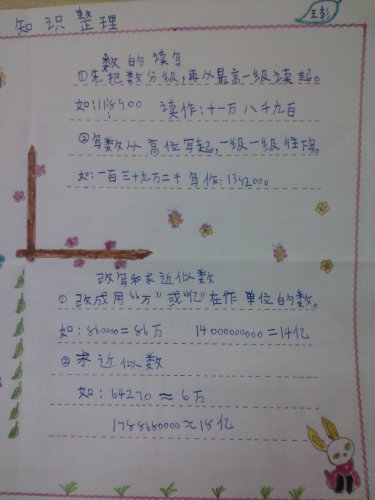 知识整理
数的读写
①先把数分级,再从最高一级读起。
如:118900 读作:十一万八千九百
②写数从高位写起,一级一级往下写。
如:一百三十九万二千 写作:1392000
改写和求近似数
①改成用“万”或“亿”在作单位的数。
如:860000=86万 1400000000=14亿
②求近似数
如:64270≈6万
≈18亿